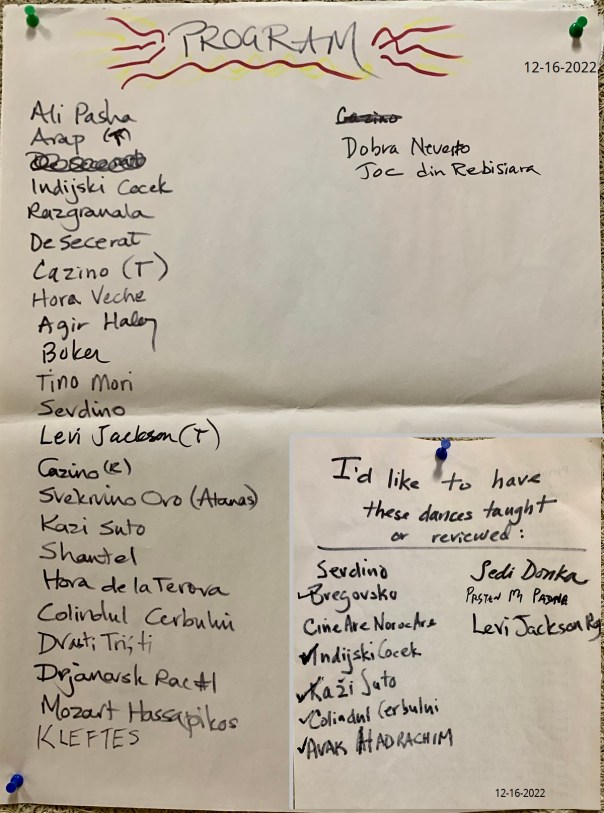 PROGRAM
12-16-2022
Ali Pasha
Arap (T)
Indijski Cocek
Razgranala
De secerat
Cazino (T)
Hora Veche
Agir Haley
Boker
Tino Mori
Sevdino
Levi Jackson (T)
Cazino (R)
Svekrvino Oro (Atanas)
Kazi Suto
Shantel
Hora de la Terova
Colindul Cerbului
Drjanovsk Rac #1
Mozart Hassapikos
KLEFTES
Cazino
Dobra Nevesto
Joc din Rebisiara
I'd like to have
these dances taught
or reviewed:
Sevdino
Bregovsko
Cine Are Noroc Are
Indijski Cocek
Kaži Suto
Colindul Cerbului
AVAK HADRACHIM
Sedi Donka
PRSTEN MI PADNA
Levi Jackson Rg
12-16-2022